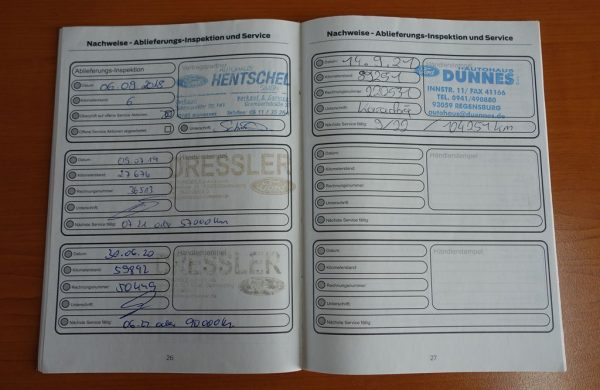 Nachweise - Ablieferungs-Inspektion und Service
Ablieferungs-Inspektion
Datum 06.09.2018
Kilometerstand 6
Offene Service Aktionen abgearbeitet
Unterschrift
HENTSCHEL
Datum 09.07.19
Kilometerstand 27676
Rechnungsnummer 36513
Unterschrift
Nächste Service fällig 07.21 oder 57000Km
Händlerstempel
DRESSLER
Ford
Datum 30.06.20
Kilometerstand 59892
Rechnungsnummer 50449
Unterschrift
Nächste Service fällig 06.22 oder 90000Km
Händlerstempel
DRESSLER
Ford
26
Nachweise - Ablieferungs-Inspektion und Service
Datum 14.9.21
Kilometerstand
Rechnungsnummer
Unterschrift
Nächste Service fällig 9/22 / 104251 km
AUTOHAUS
DÜNNES
INNSTR. 11/ FAX 41166
TEL. 0941/490880
93059 REGENSBURG
autohaus@duennes.de
Datum
Kilometerstand
Rechnungsnummer
Unterschrift
Nächste Service fällig
Händlerstempel
Datum
Kilometerstand
Rechnungsnummer
Unterschrift
Nächste Service fällig
Händlerstempel
27